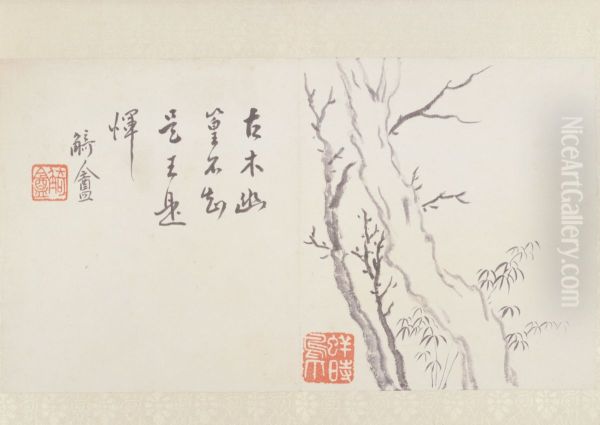 古木幽
篁不知
是王是
惲
觭盦
NiceArtGallery.com